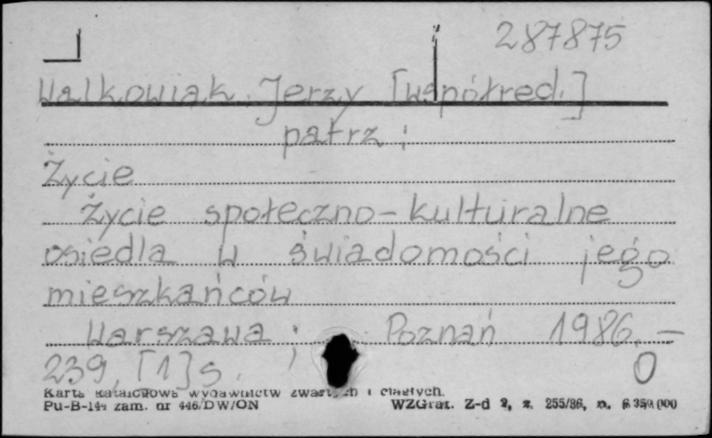 287875
Walkowiak Jerzy [współred.]
patrz:
Życie
Życie społeczno-kulturalne
osiedla w świadomości jego
mieszkańców
Warszawa ; Poznań 1986. –
239, [1] s. 0
Karta katalogowa wydawnictw zwartych i ciągłych.
Pu-B-144 zam. nr 446/DW/ON WZGraf. Z-d 2, z. 255/86, n.